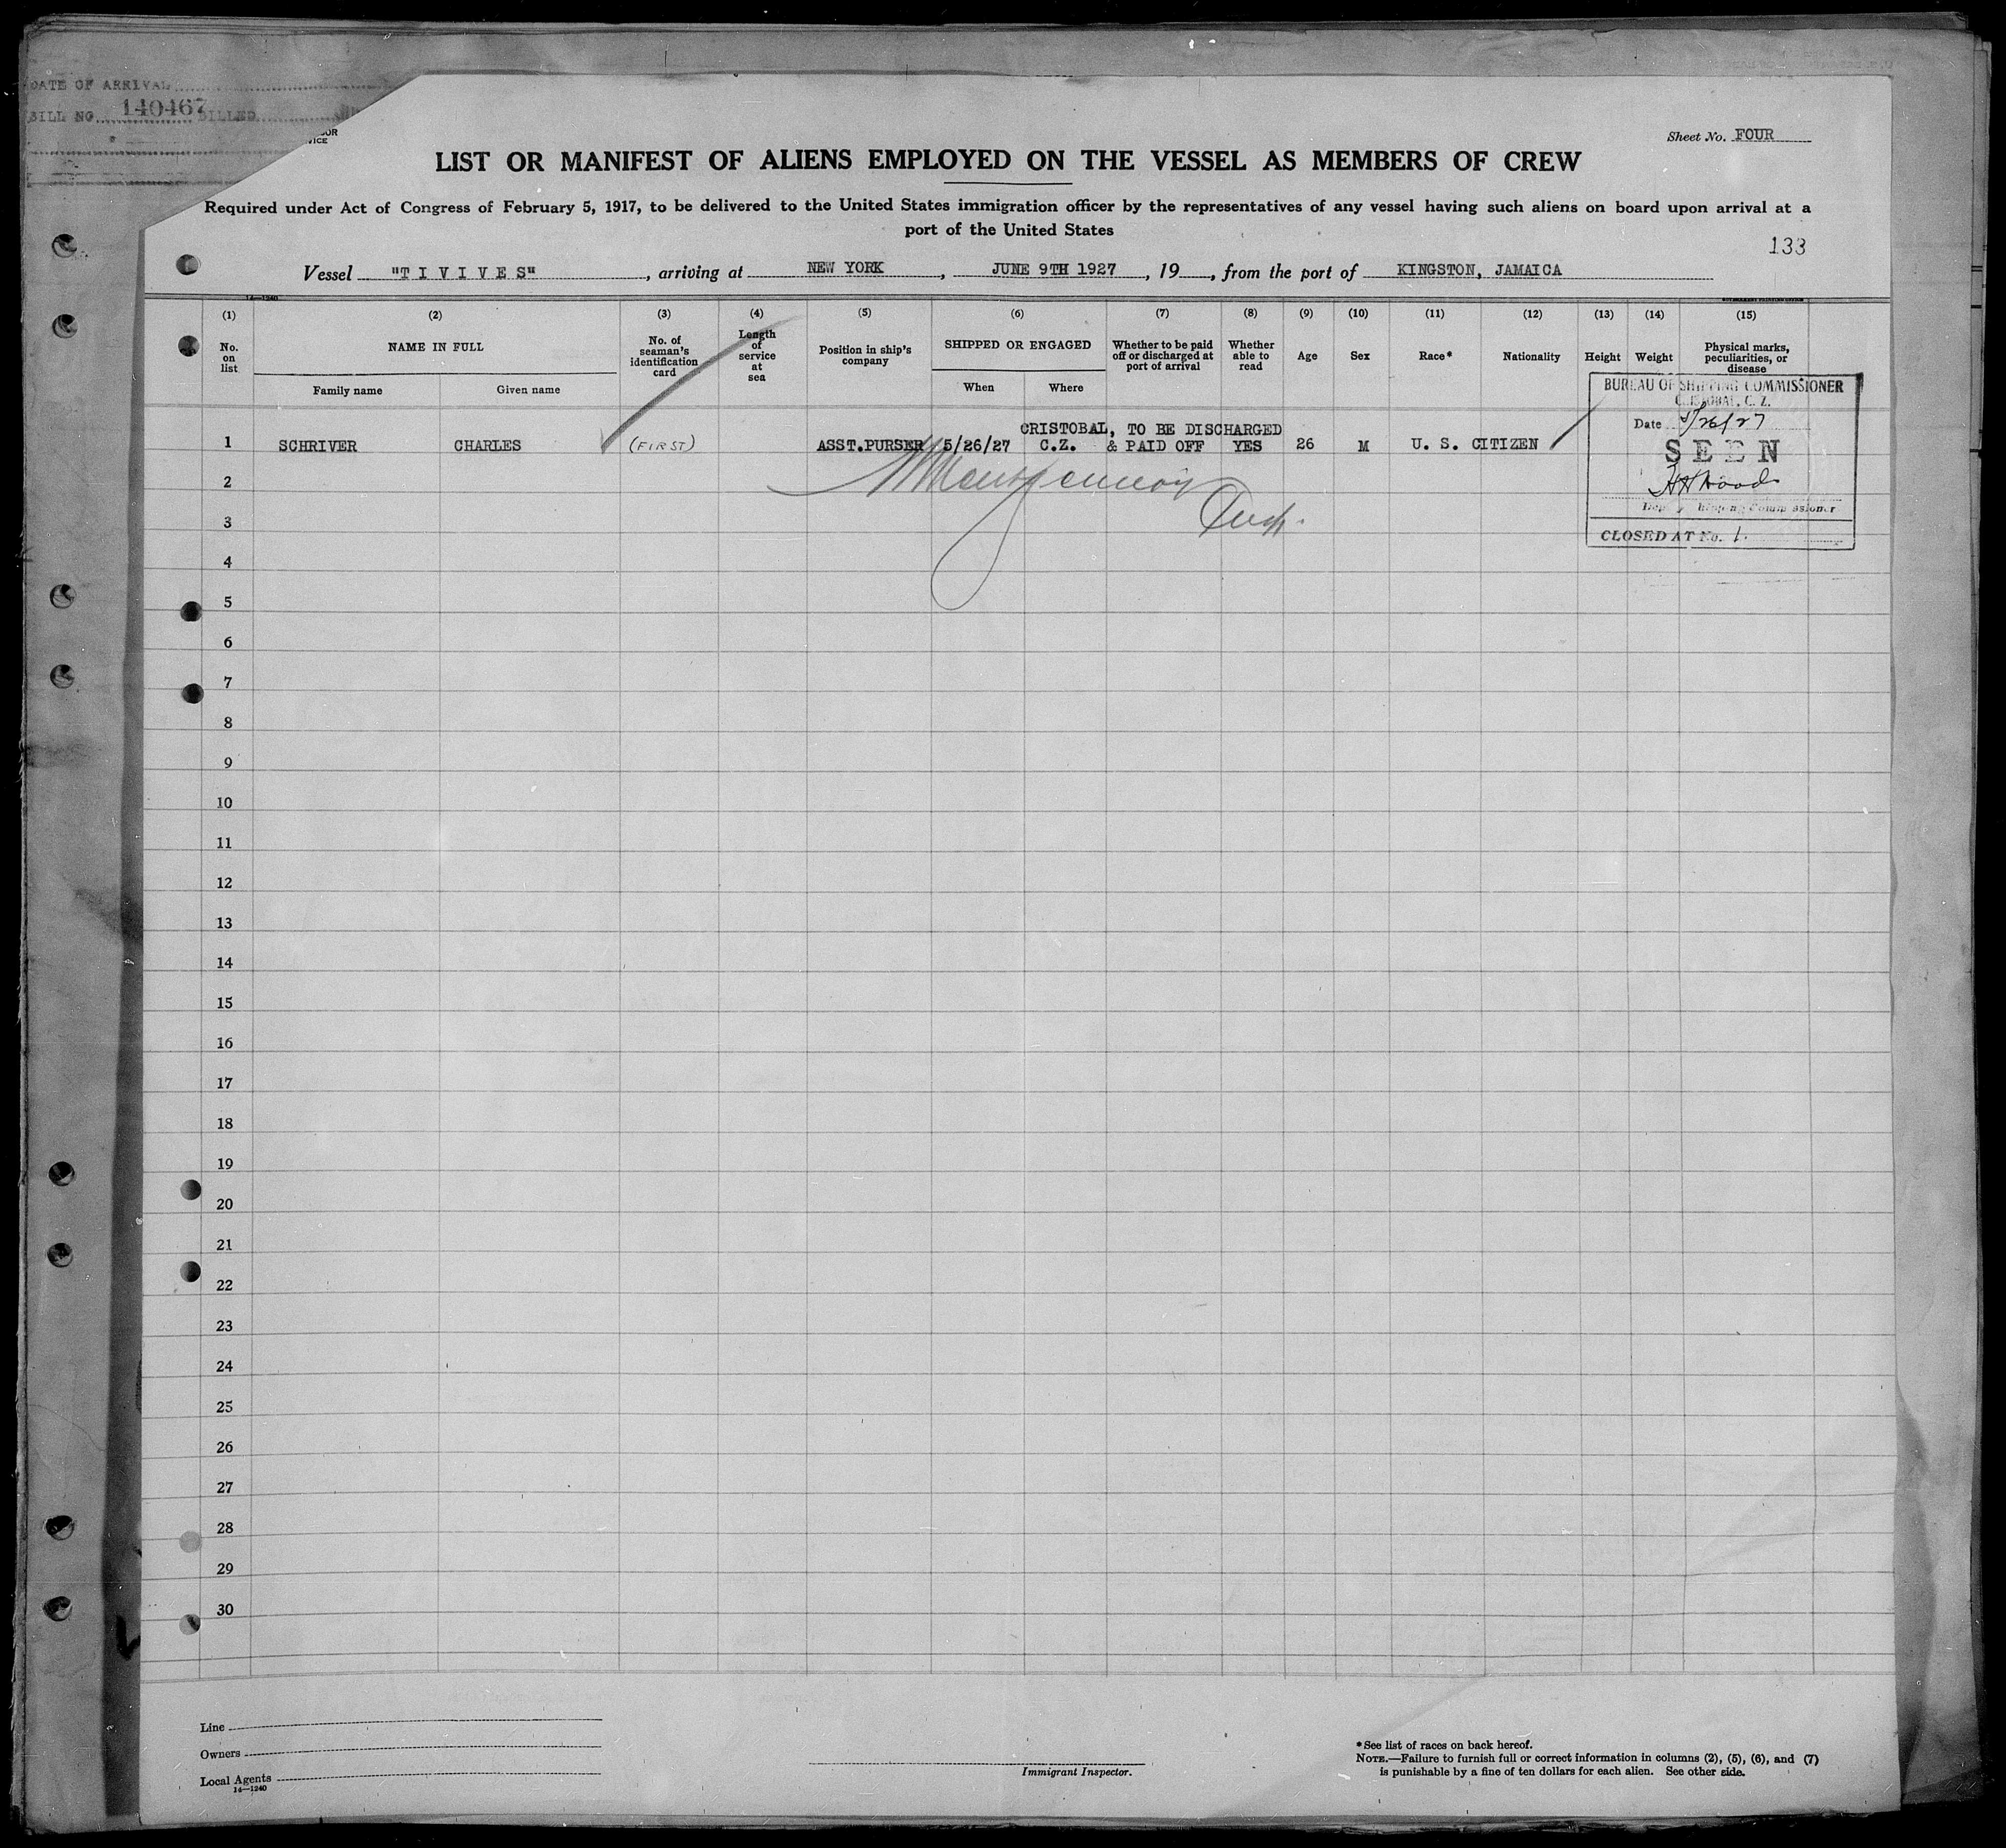 DATE OF ARRIVAL
BILL NO. 140467 BILLED
Sheet No. FOUR
LIST OR MANIFEST OF ALIENS EMPLOYED ON THE VESSEL AS MEMBERS OF CREW
Required under Act of Congress of February 5, 1917, to be delivered to the United States immigration officer by the representatives of any vessel having such aliens on board upon arrival at a
port of the United States
133
Vessel "TIVIVES", arriving at NEW YORK, JUNE 9TH 1927, 19, from the port of KINGSTON, JAMAICA
14—1240
(1) (2) (3) (4) (5) (6) (7) (8) (9) (10) (11) (12) (13) (14) (15)
No. on list
NAME IN FULL
Family name Given name
No. of seaman's identification card
Length of service at sea
Position in ship's company
SHIPPED OR ENGAGED
When Where
Whether to be paid off or discharged at port of arrival
Whether able to read
Age
Sex
Race*
Nationality
Height
Weight
Physical marks, peculiarities, or disease
BUREAU OF SHIPPING COMMISSIONER
CRISTOBAL, C. Z.
Date 5/26/27
SEEN
HH Woods
Deputy Shipping Commissioner
CLOSED AT No. 1.
CRISTOBAL, TO BE DISCHARGED
1 SCHRIVER CHARLES (FIRST) ASST.PURSER 5/26/27 C.Z. & PAID OFF YES 26 M U. S. CITIZEN
2
3
4
5
6
7
8
9
10
11
12
13
14
15
16
17
18
19
20
21
22
23
24
25
26
27
28
29
30
Line
Owners
Local Agents
14—1240
Immigrant Inspector.
*See list of races on back hereof.
NOTE.—Failure to furnish full or correct information in columns (2), (5), (6), and (7)
is punishable by a fine of ten dollars for each alien. See other side.